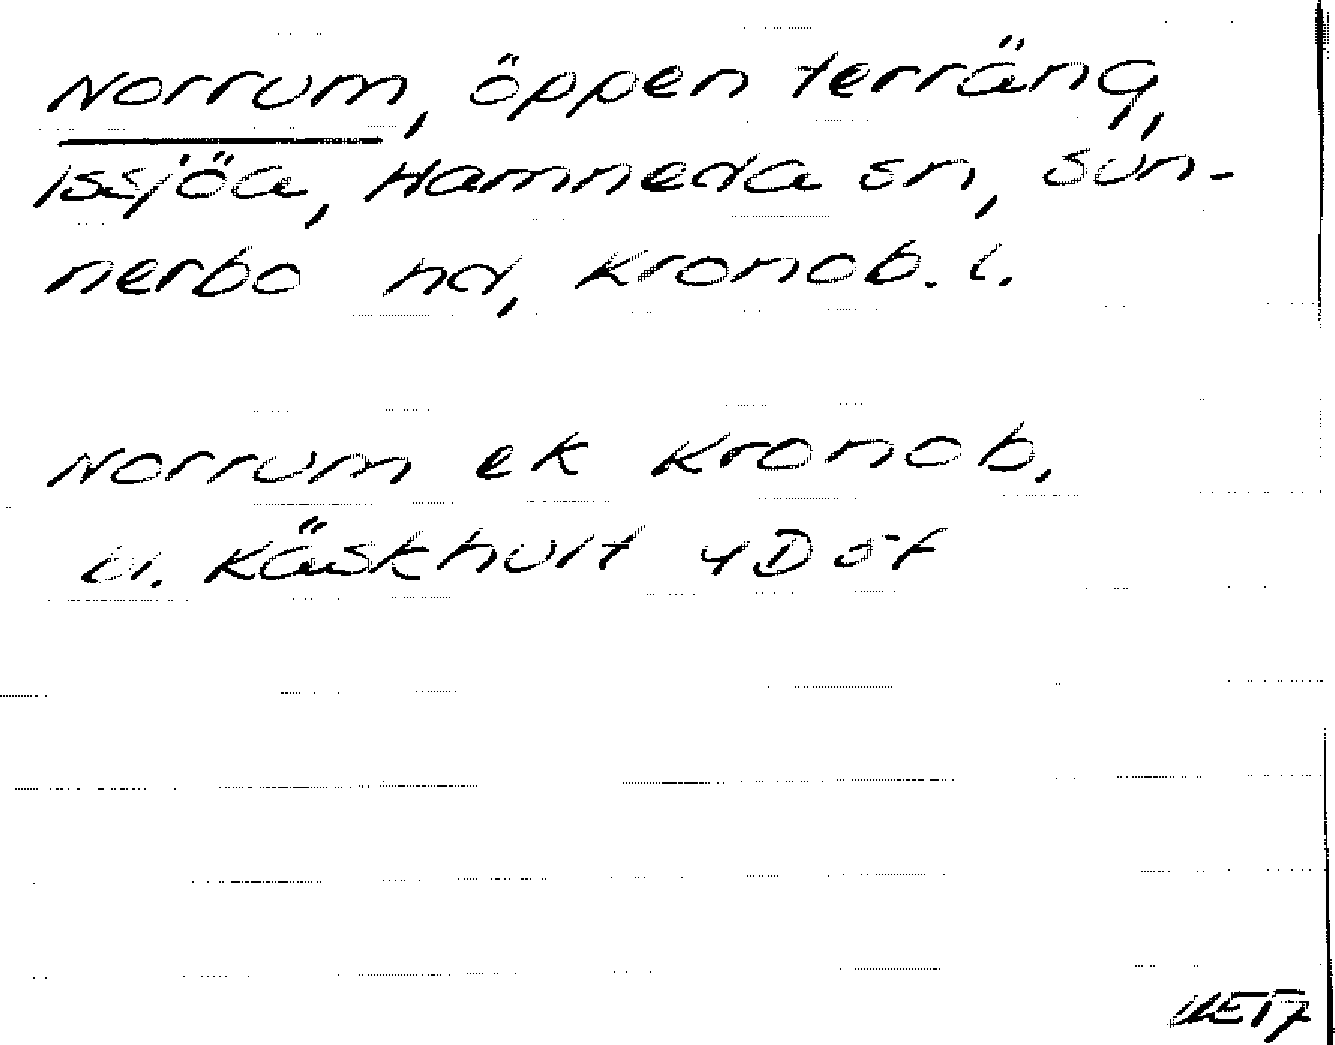 Norrum, öppen terräng,
Issjöa, Hamneda sn, Sun-
nerbo hd, Kronob. l.
Norrum ek Kronob.
bl. Käskhult 4D öf